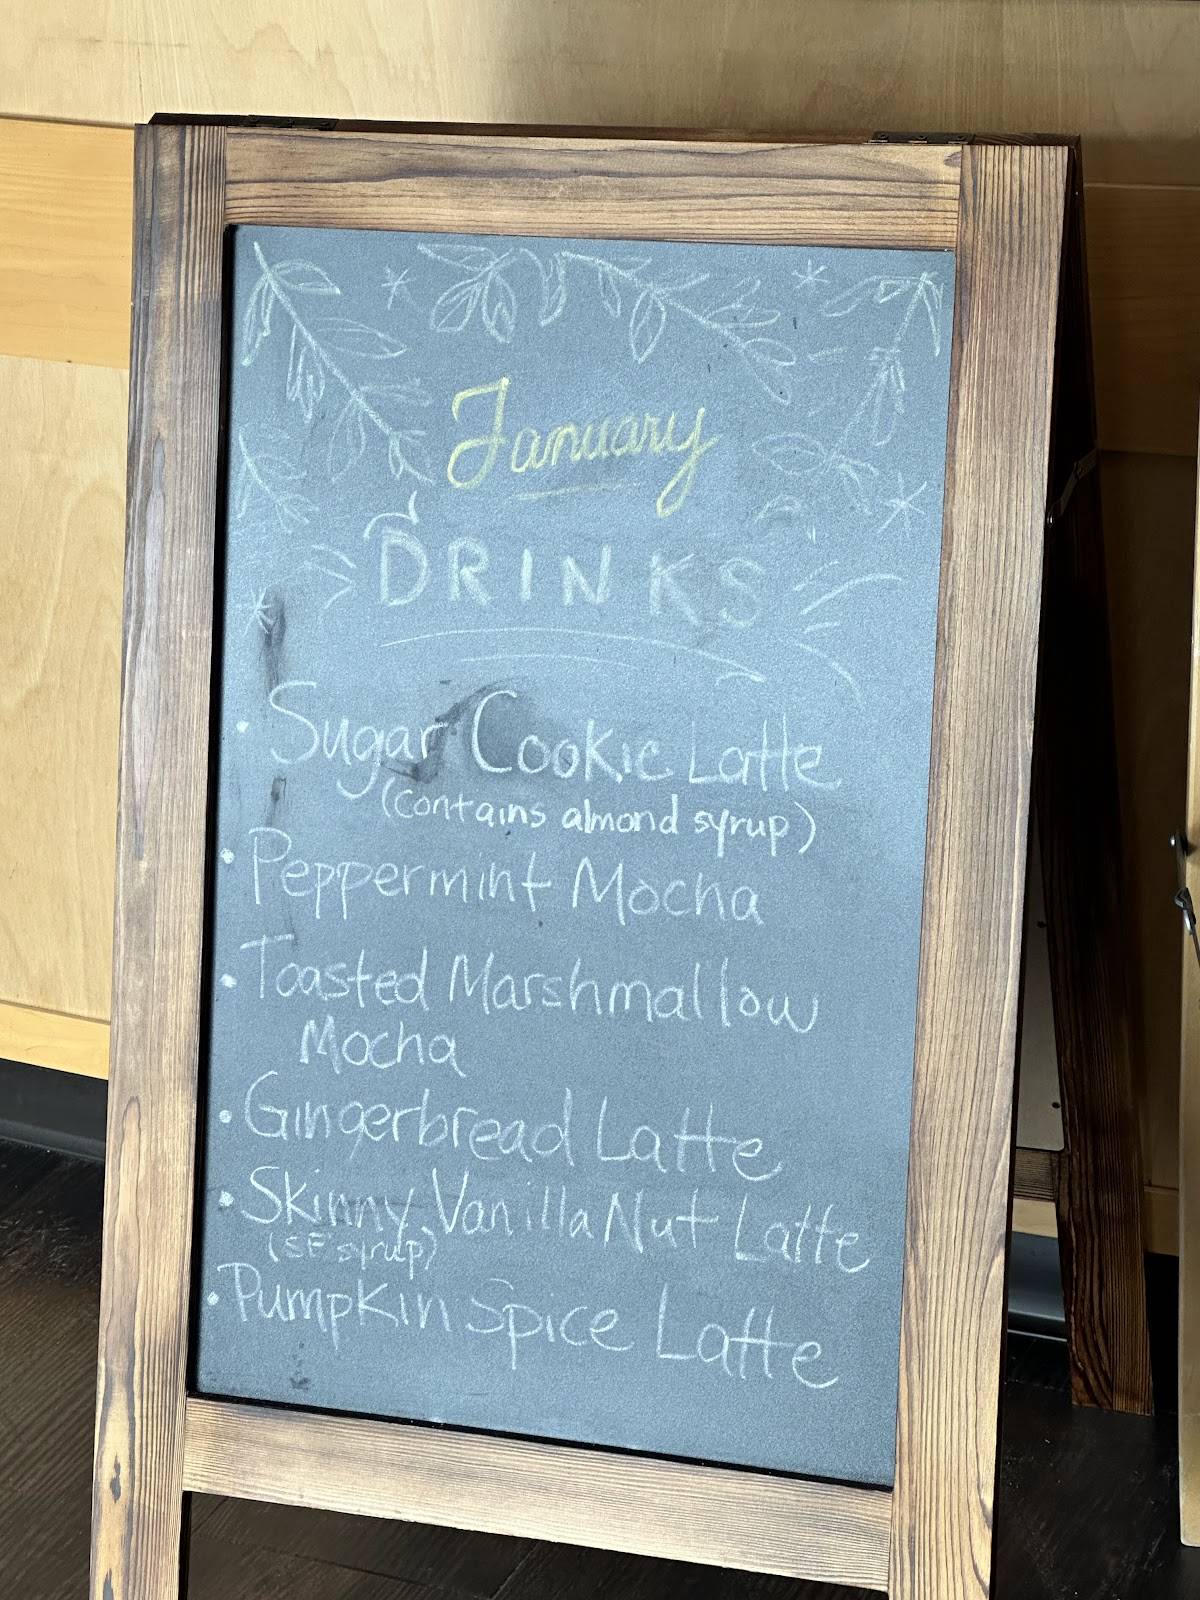 January
DRINKS
• Sugar Cookie Latte
(contains almond syrup)
• Peppermint Mocha
• Toasted Marshmallow
Mocha
• Gingerbread Latte
• Skinny Vanilla Nut Latte
(SF syrup)
• Pumpkin Spice Latte